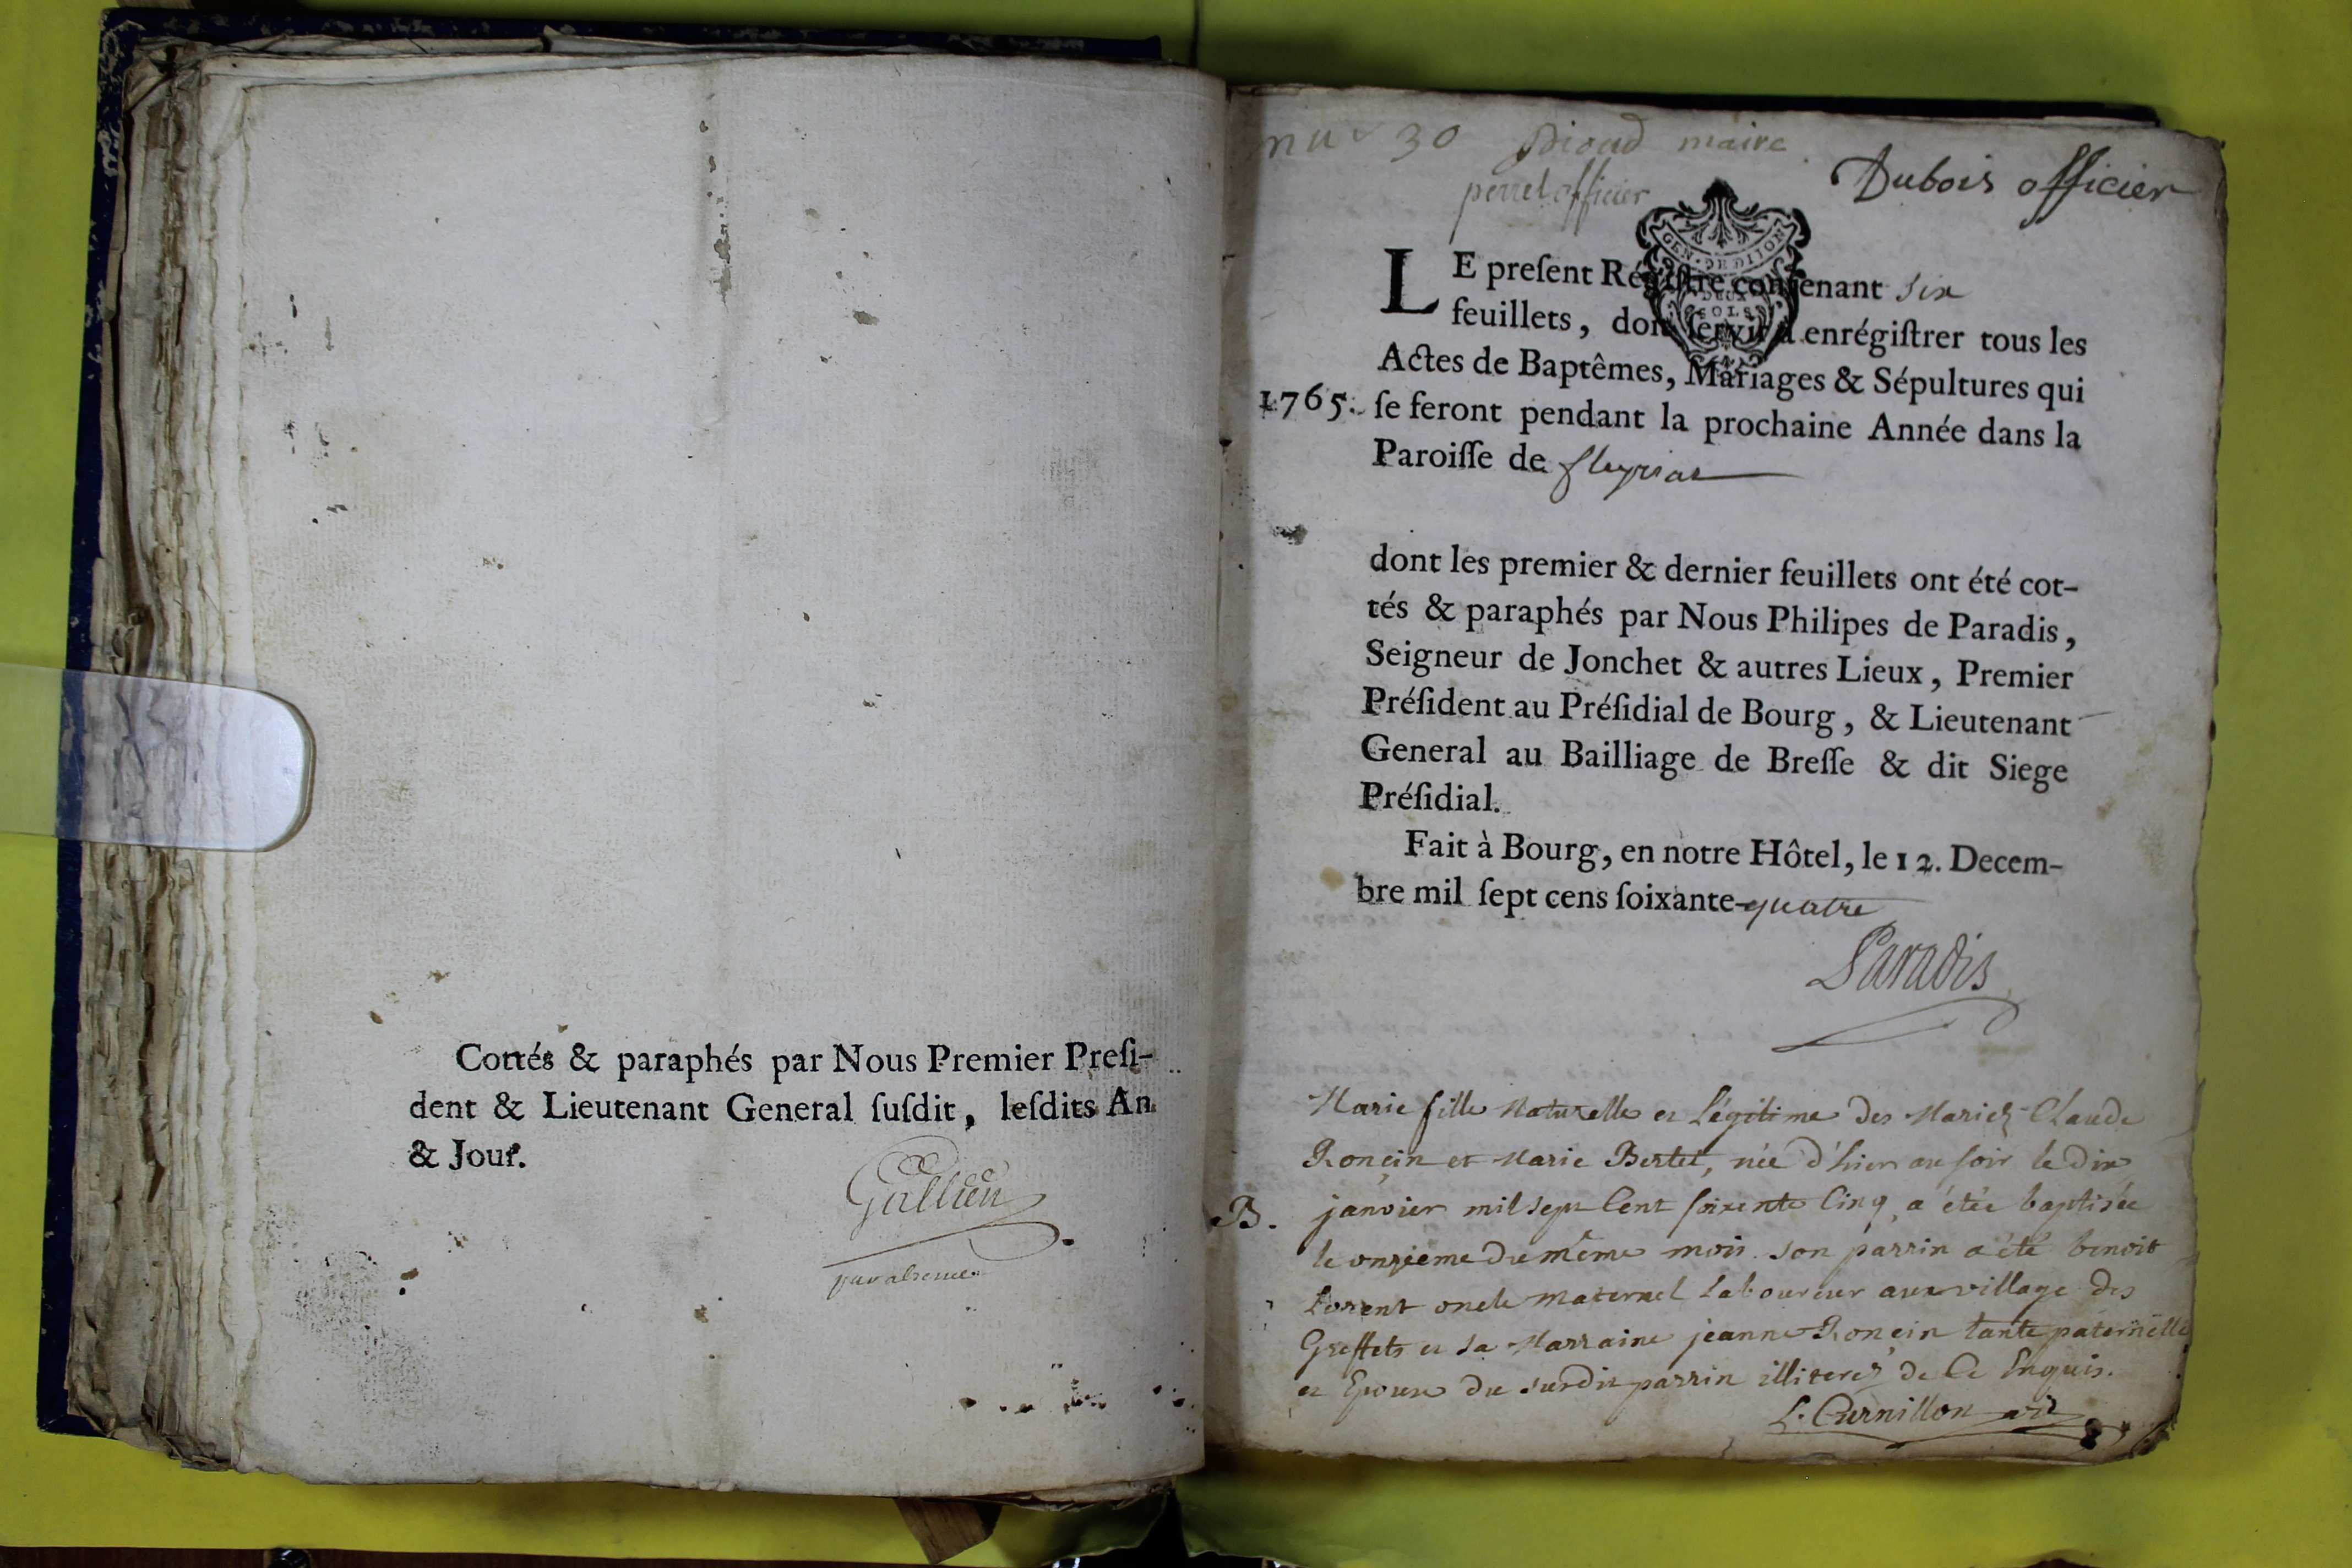 Cottés & paraphés par Nous Premier Preſi-
dent & Lieutenant General ſuſdit, leſdits An
& Jour.
Gallien
par absence
nu 30 maire
perret officier
Dubois officier
GEN · DE DIJON
DEUX
SOLS
LE preſent Régiſtre contenant six
feuillets, doit ſervir à enrégiſtrer tous les
Actes de Baptêmes, Mariages & Sépultures qui
1765. ſe feront pendant la prochaine Année dans la
Paroiſſe de fleyriat
dont les premier & dernier feuillets ont été cot-
tés & paraphés par Nous Philipes de Paradis,
Seigneur de Jonchet & autres Lieux, Premier
Préſident au Préſidial de Bourg, & Lieutenant
General au Bailliage de Breſſe & dit Siege
Préſidial.
Fait à Bourg, en notre Hôtel, le 12. Decem-
bre mil ſept cens ſoixante-quatre
Paradis
Marie fille Naturelle et Légitime des Mariez Claude
Ronçin et Marie Bertet, née d'hier au soir le dix
B. janvier mil sept Cent soixente Cinq, a étée baptisée
le onzieme du même mois son parrin a été benoit
Lorent oncle maternel Laboureur aux village des
Greffets et sa Marraine jeanne Ronçin tante paternelle
et Epouse du susdit parrin illiterez de Ce Enquis.
L. Curnillon